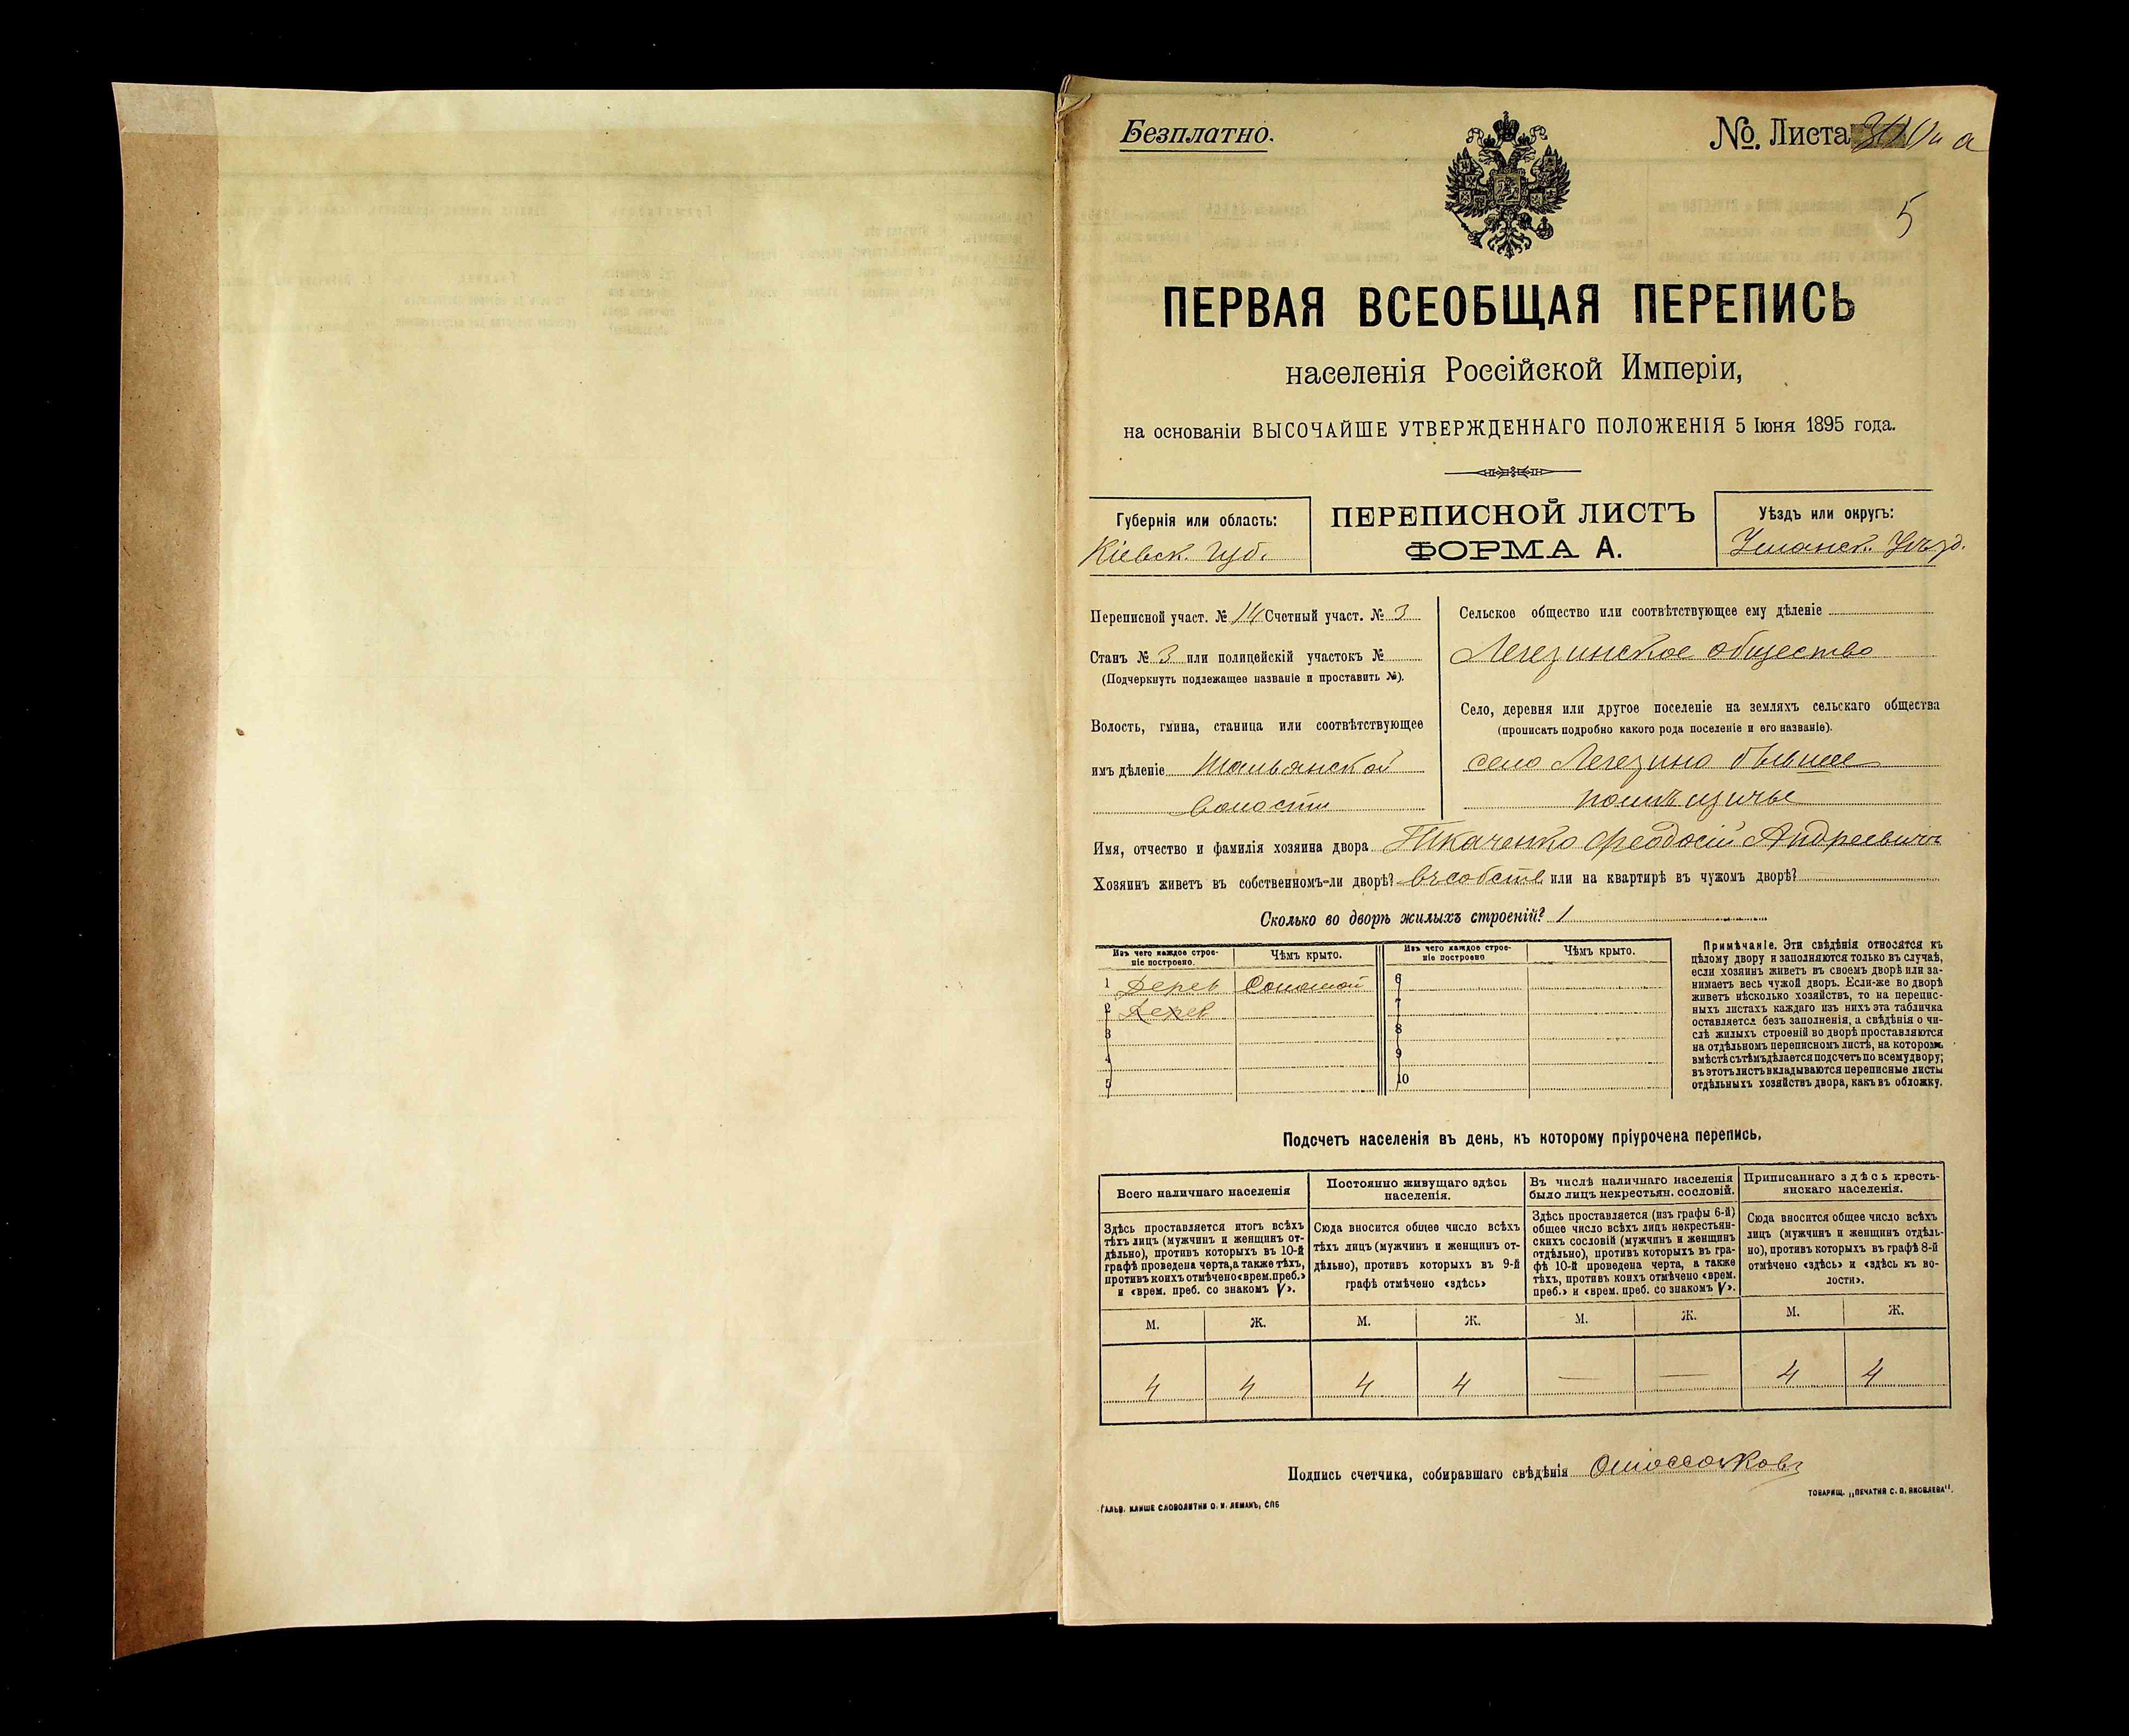 Безплатно.
№. Листа
5
ПЕРВАЯ ВСЕОБЩАЯ ПЕРЕПИСЬ
населенія Россійской Имперіи,
на основаніи ВЫСОЧАЙШЕ УТВЕРЖДЕННАГО ПОЛОЖЕНІЯ 5 Іюня 1895 года.
Губернія или область:
Кіевск. Губ.
ПЕРЕПИСНОЙ ЛИСТЪ
ФОРМА А.
Уѣздъ или округъ:
Уманск. Уѣзд.
Переписной участ. № 14 Счетный участ. № 3
Станъ № 3 или полицейскій участокъ №
(Подчеркнуть подлежащее названіе и проставить №).
Волость, гмина, станица или соотвѣтствующее
имъ дѣленіе Тальянской
волости
Сельское общество или соотвѣтствующее ему дѣленіе
Легезинское общество
Село, деревня или другое поселеніе на земляхъ сельскаго общества
(прописать подробно какого рода поселеніе и его названіе).
село Легезино бывшее
помѣщичье
Имя, отчество и фамилія хозяина двора Ткаченко Феодосій Андреевичъ
Хозяинъ живетъ въ собственномъ-ли дворѣ? въ собств или на квартирѣ въ чужомъ дворѣ?
Сколько во дворѣ жилыхъ строеній? 1
Изъ чего каждое строе-
ніе построено.
Чѣмъ крыто.
Изъ чего каждое строе-
ніе построено
Чѣмъ крыто.
1 Дерев Соломой
2 Дерев
3
4
5
6
7
8
9
10
Примѣчаніе. Эти свѣдѣнія относятся къ
цѣлому двору и заполняются только въ случаѣ,
если хозяинъ живетъ въ своемъ дворѣ или за-
нимаетъ весь чужой дворъ. Если-же во дворѣ
живетъ нѣсколько хозяйствъ, то на перепис-
ныхъ листахъ каждаго изъ нихъ эта табличка
оставляется безъ заполненія, а свѣдѣнія о чи-
слѣ жилыхъ строеній во дворѣ проставляются
на отдѣльномъ переписномъ листѣ, на которомъ
вмѣстѣ съ тѣмъ дѣлается подсчетъ по всему двору;
въ этотъ листъ вкладываются переписные листы
отдѣльныхъ хозяйствъ двора, какъ въ обложку.
Подсчетъ населенія въ день, къ которому пріурочена перепись.
Всего наличнаго населенія
Здѣсь проставляется итогъ всѣхъ
тѣхъ лицъ (мужчинъ и женщинъ от-
дѣльно), противъ которыхъ въ 10-й
графѣ проведена черта, а также тѣхъ,
противъ коихъ отмѣчено «врем. преб.»
и «врем. преб. со знакомъ V».
Постоянно живущаго здѣсь
населенія.
Сюда вносится общее число всѣхъ
тѣхъ лицъ (мужчинъ и женщинъ от-
дѣльно), противъ которыхъ въ 9-й
графѣ отмѣчено «здѣсь»
Въ числѣ наличнаго населенія
было лицъ некрестьян. сословій.
Здѣсь проставляется (изъ графы 6-й)
общее число всѣхъ лицъ некрестьян-
скихъ сословій (мужчинъ и женщинъ
отдѣльно), противъ которыхъ въ гра-
фѣ 10-й проведена черта, а также
тѣхъ, противъ коихъ отмѣчено «врем.
преб.» и «врем. преб. со знакомъ V».
Приписаннаго здѣсь кресть-
янскаго населенія.
Сюда вносится общее число всѣхъ
лицъ (мужчинъ и женщинъ отдѣль-
но), противъ которыхъ въ графѣ 8-й
отмѣчено «здѣсь» и «здѣсь къ во-
лости».
М. Ж. М. Ж. М. Ж. М. Ж.
4 4 4 4 — — 4 4
Подпись счетчика, собиравшаго свѣдѣнія
ГАЛЬВ. КЛИШЕ СЛОВОЛИТНИ О. И. ЛЕМАНЪ, СПБ
ТОВАРИЩ. „ПЕЧАТНЯ С. П. ЯКОВЛЕВА".